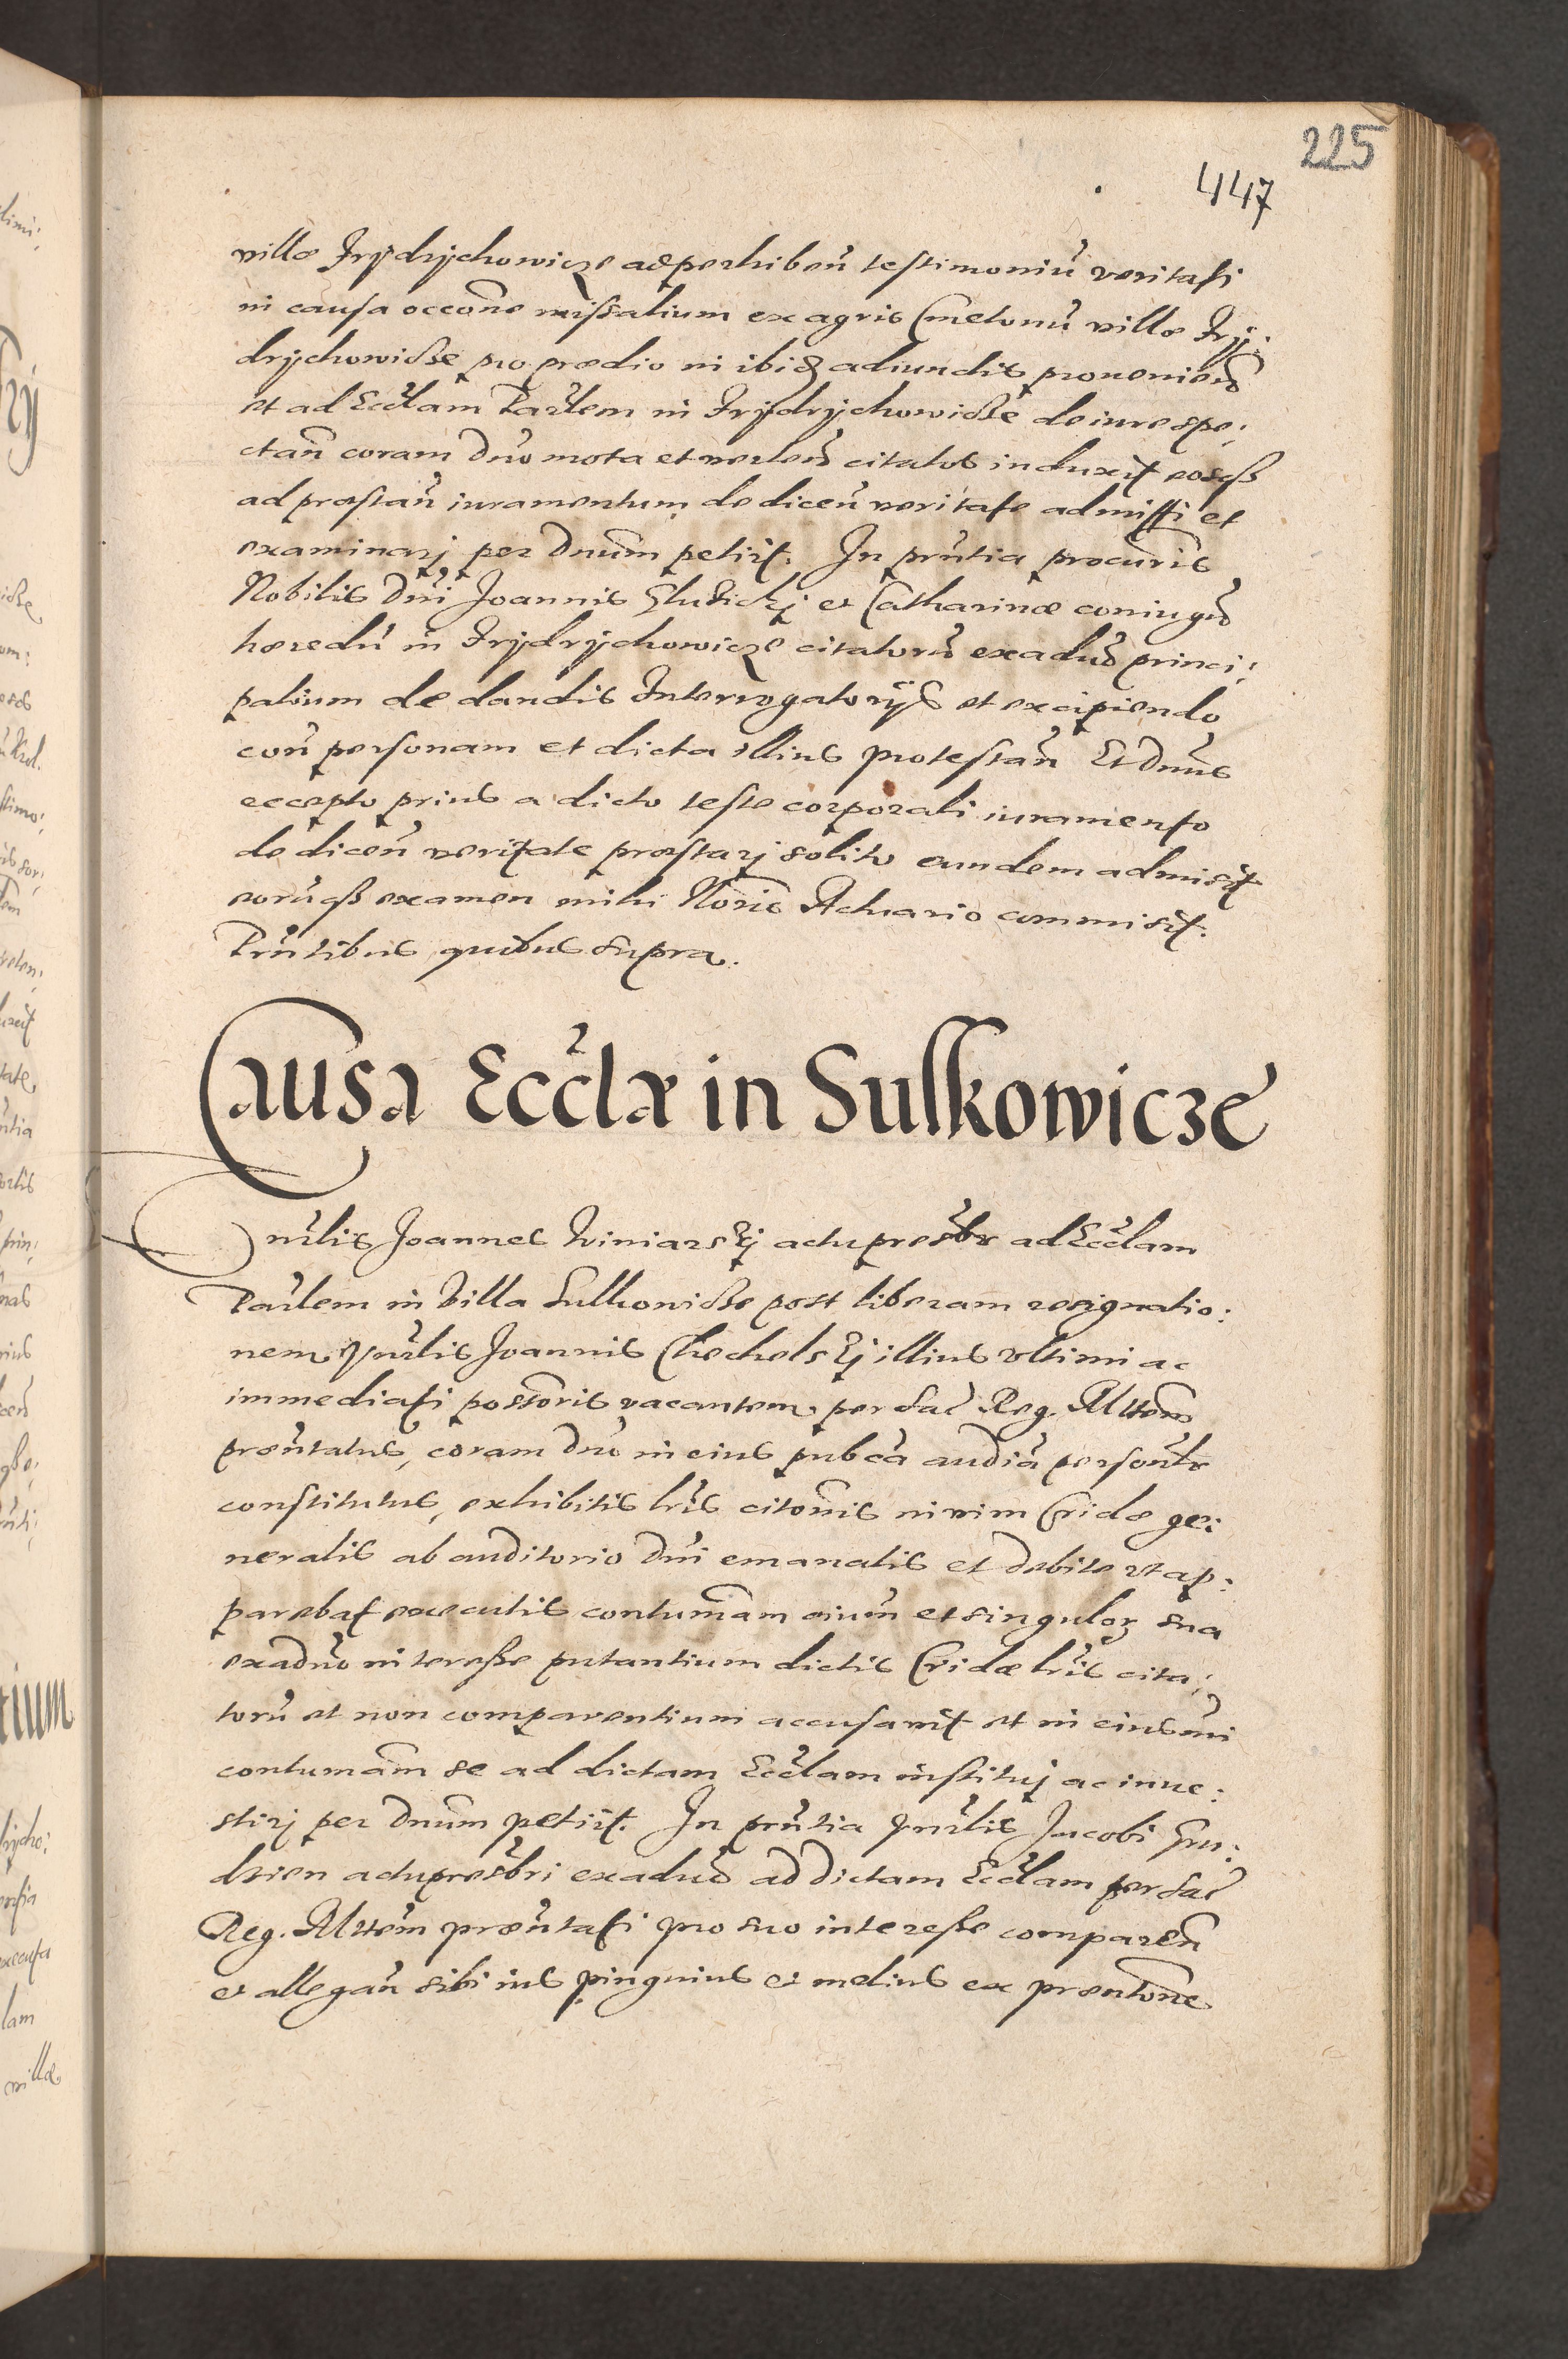 225
447
villæ Frydrychowicze ad perhibeñ testimoniũ veritati
in causa occoñe missalium ex agris Cmetonũ villæ Fry:
drychowicze pro prædio in ibid adiunctis proveniend
et ad Eccl̃am Parl̃em in Frydrychowicze de iure spe:
ctañ coram Dño mota et verteñ citatos induxit eosq3
ad præstañ iuramentum de diceñ veritate admitti et
examinarj per Dnũm petiit. In pñtia procur̃is
Nobilis Dñi Joannis et Catharinæ coniugũ
hæredũ in Frydrychowicze citatorũ ex aduõ princi:
palium de dandis Interrogatorijs et excipiendo
coñ personam et dicta illius protestañ Et Dnũs
accepto prius a dicto teste corporali iuramento
de diceñ veritate præstarj solito eundem admisit
eorũq3 examen mihi Norĩo Actuario commisit.
Pñtibus quibus supra.
Causa Eccl̃æ in Sulkowicze
Hoñrlis Joannes Winiarskj actu presb̃r ad Eccl̃am
Parl̃em in Villa Sulkowicze post liberam resignatio:
nem Hoñrlis Joannis Chechelskj illius vltimi ac
immediati possoris̃ vacantem per Sac̃ Reg. Mttem̃
præñtatus, coram Dño in eius pubca audia personlr̃
constitutus, exhibitis lrĩs citoñis in vim Cridæ ge:
neralis ab auditorio Dñi emanatis et debite vt ap:
parebat executis contumãm oium̃ et singulor sua
ex aduõ interesse putantium dictis Cridæ lrĩs cita:
torũ et non comparentium accusavit et in eiusmi
contumãm se ad dictam Eccl̃am instituj ac inue:
stirj per Dnũm petiit. In pñtia Hoñrlis Jacobi
actu presb̃ri ex aduõ ad dictam Eccl̃am per Sac̃
Reg. Mttem̃ præñtati pro suo interesse compareñ
et allegañ sibi ius pinguius et melius ex præntoñe